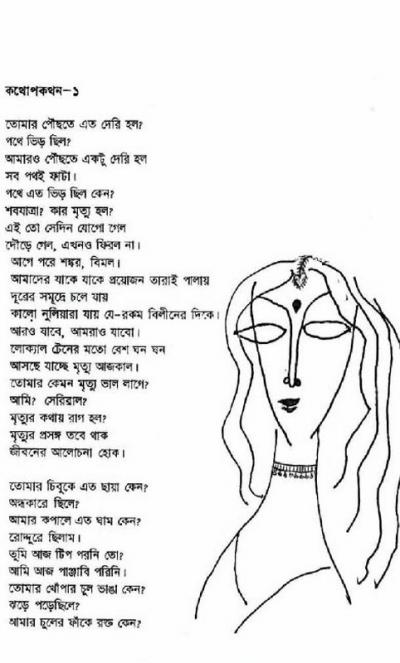 কথোপকথন-১
তোমার পৌঁছতে এত দেরি হল?
পথে ভিড় ছিল?
আমারও পৌঁছতে একটু দেরি হল
সব পথই ফাটা।
পথে এত ভিড় ছিল কেন?
শবযাত্রা? কার মৃত্যু হল?
এই তো সেদিন যোগো গেল
দৌড়ে গেল, এখনও ফিরল না।
আগে পরে শঙ্কর, বিমল।
আমাদের যাকে যাকে প্রয়োজন তারাই পালায়
দূরের সমুদ্রে চলে যায়
কালো নুলিয়ারা যায় যে-রকম বিলীনের দিকে।
আরও যাবে, আমরাও যাবো।
লোক্যাল ট্রেনের মতো বেশ ঘন ঘন
আসছে যাচ্ছে মৃত্যু আজকাল।
তোমার কেমন মৃত্যু ভাল লাগে?
আমি? সেরিব্রাল?
মৃত্যুর কথায় রাগ হল?
মৃত্যুর প্রসঙ্গ তবে থাক
জীবনের আলোচনা হোক।
তোমার চিবুকে এত ছায়া কেন?
অন্ধকারে ছিলে?
আমার কপালে এত ঘাম কেন?
রোদ্দুরে ছিলাম।
তুমি আজ টিপ পরনি তো?
আমি আজ পাঞ্জাবি পরিনি।
তোমার খোঁপার চুল ভাঙা কেন?
ঝড়ে পড়েছিলে?
আমার চুলের ফাঁকে রক্ত কেন?